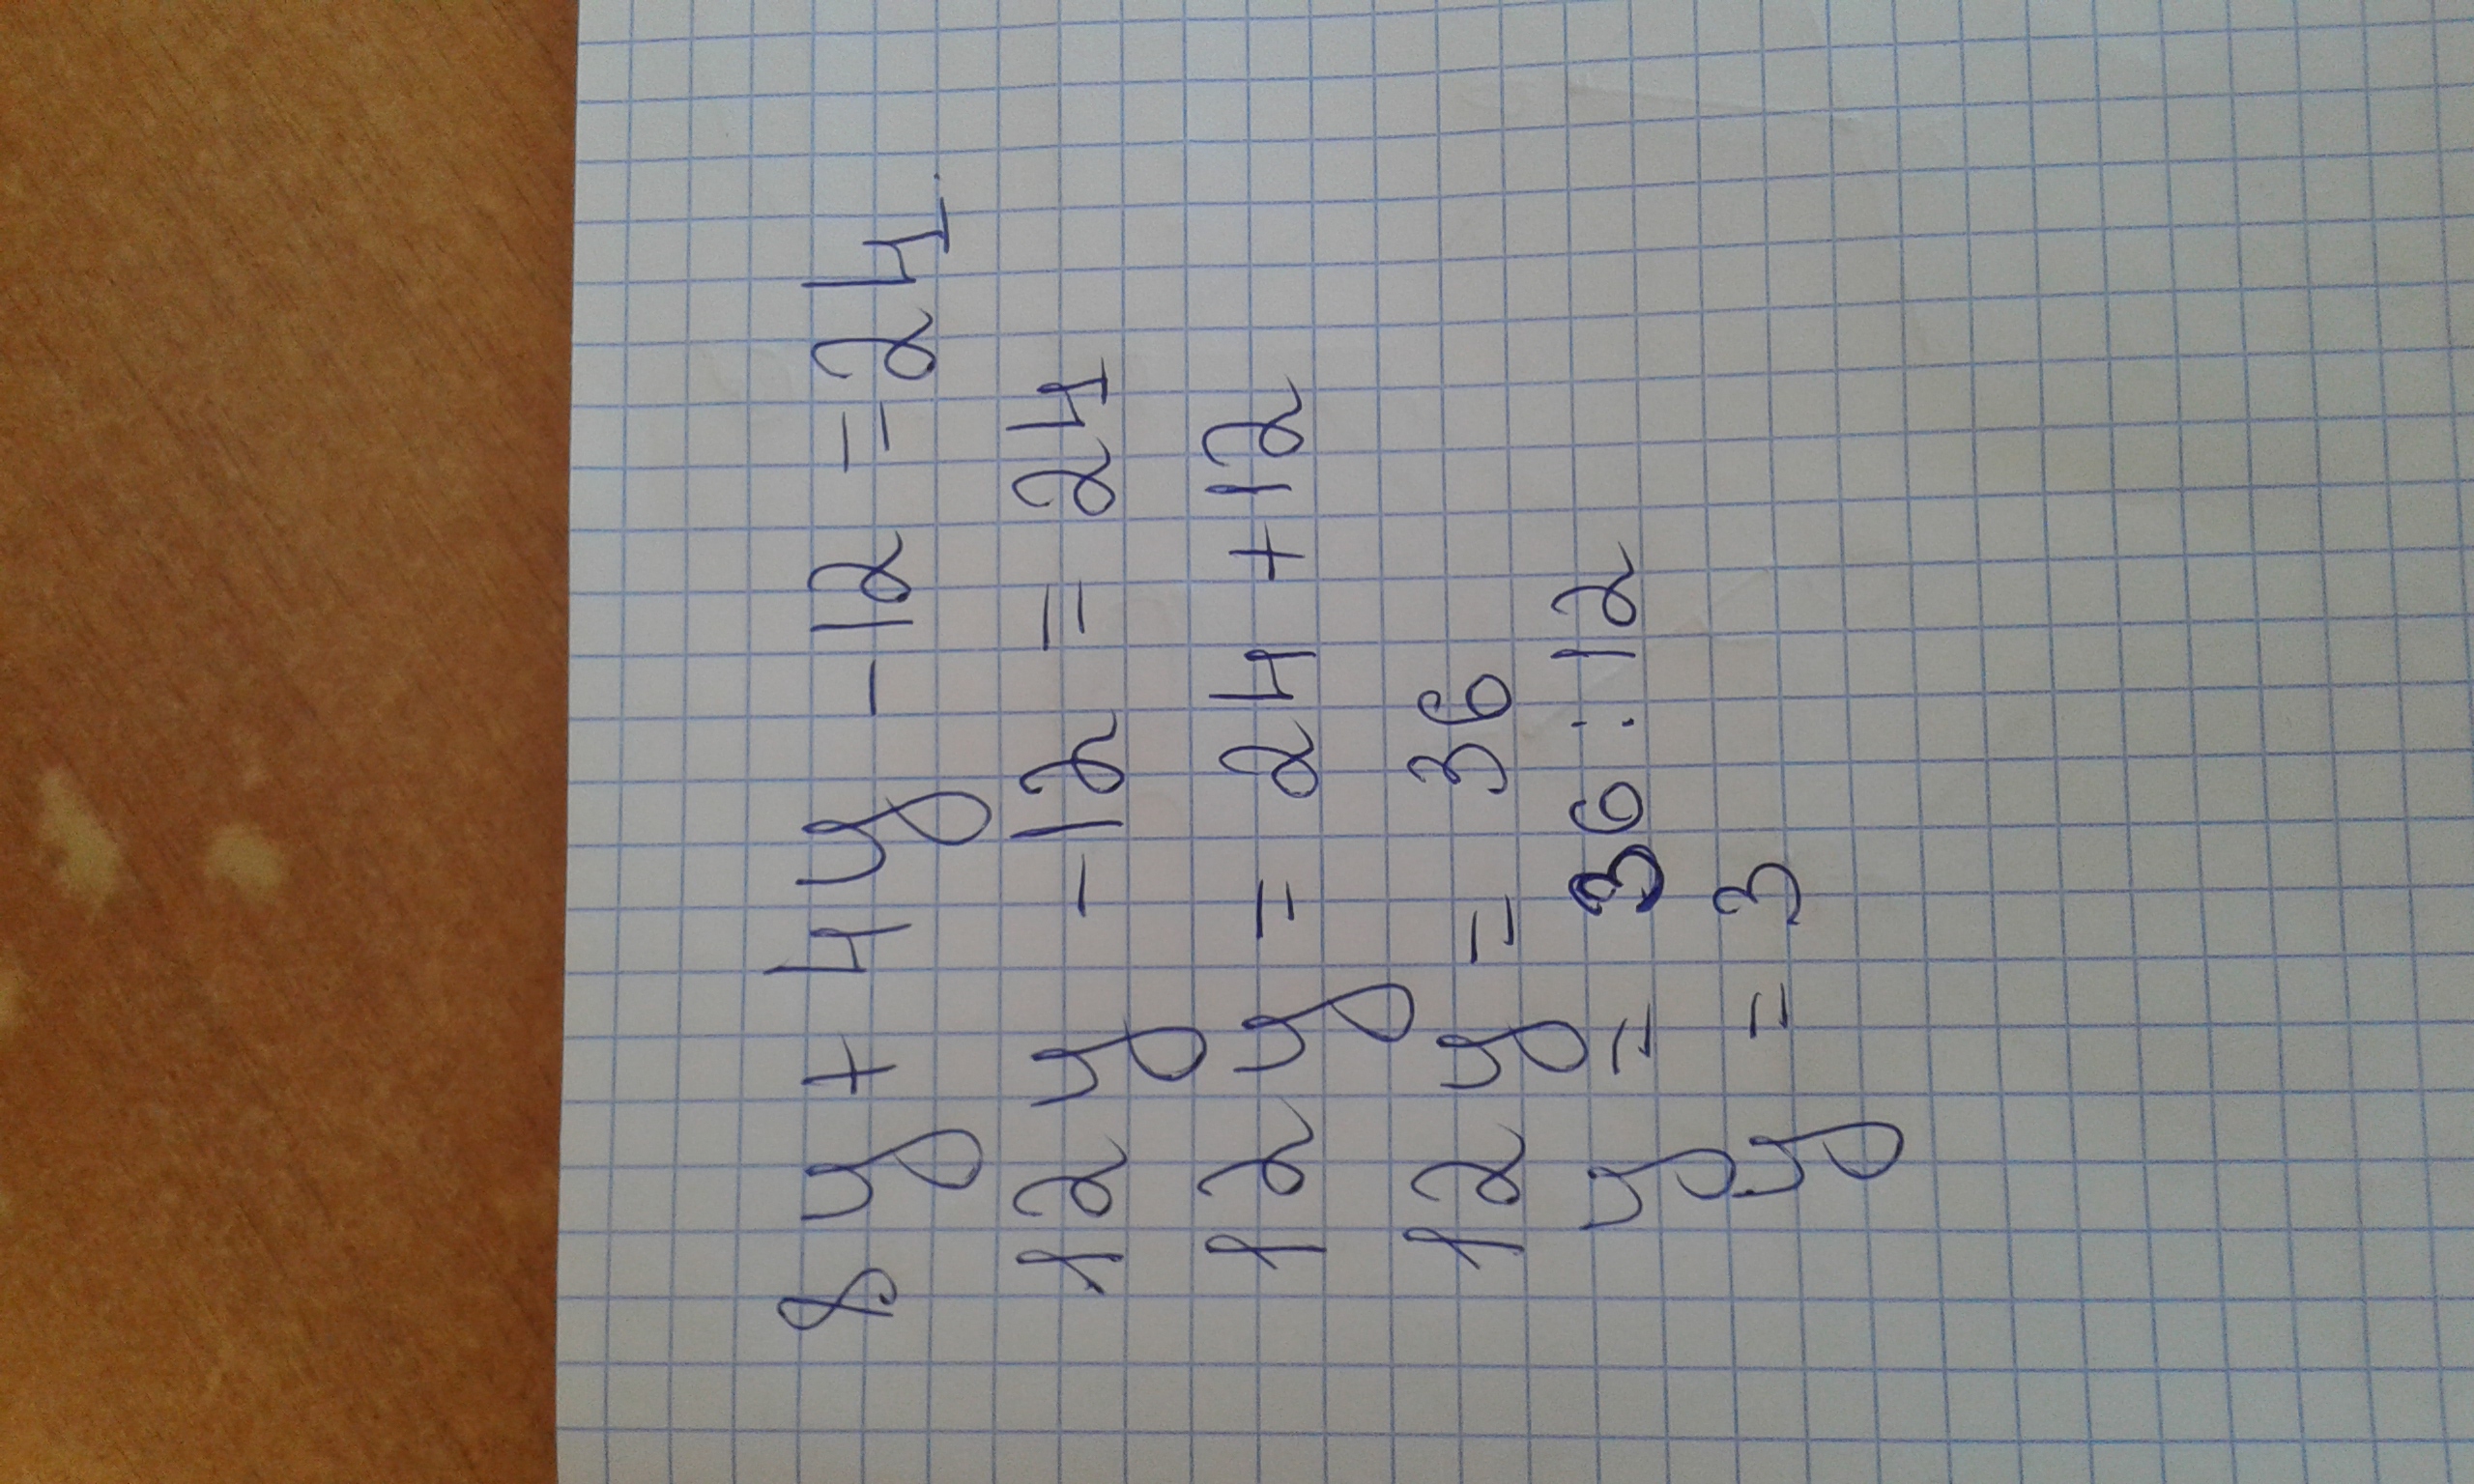 8y + 4y - 12 = 24
12y - 12 = 24
12y = 24 + 12
12y = 36
y = 36 : 12
y = 3